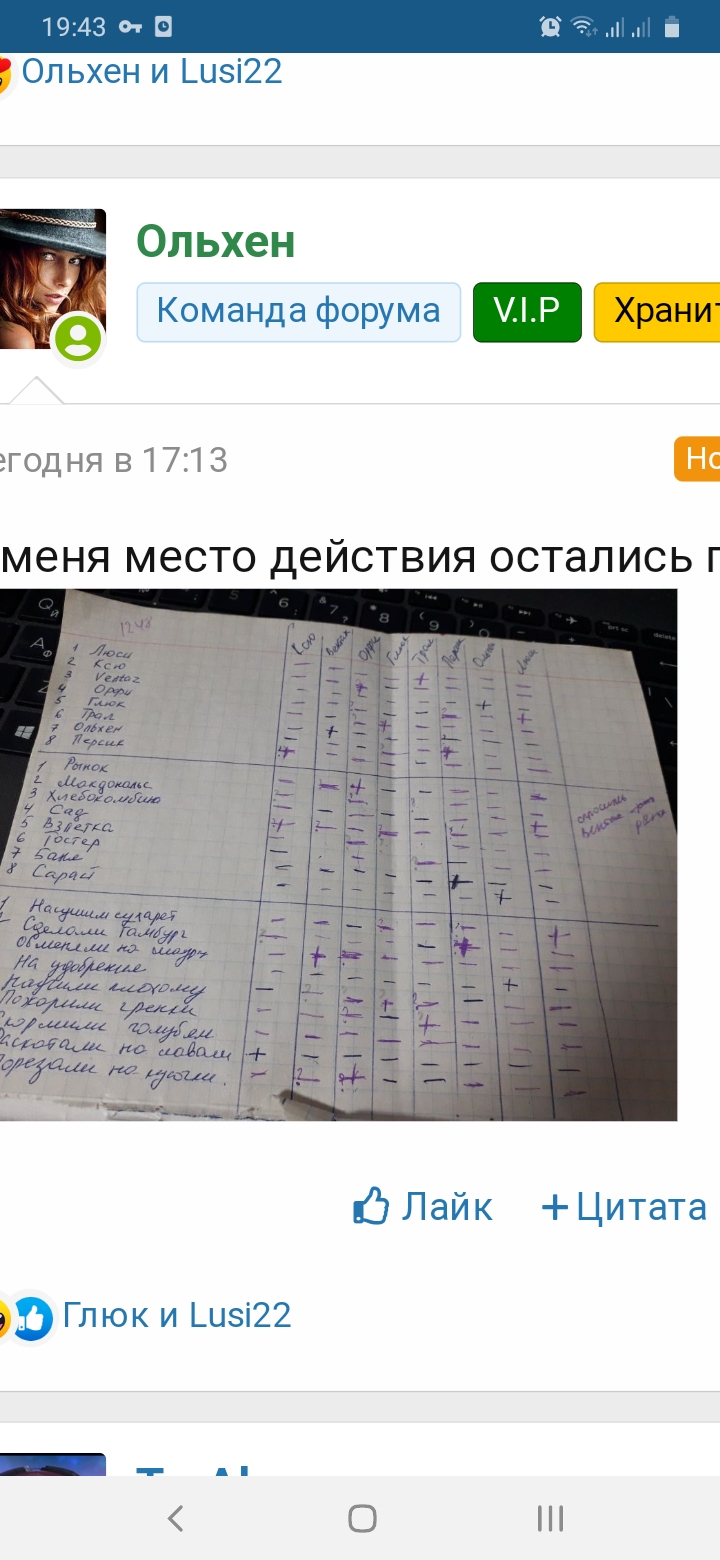 19:43
Ольхен и Lusi22
Ольхен
Команда форума
V.I.P
Хранит
егодня в 17:13
Но
меня место действия остались п
1248
Ксю Орфи Глюк Трал
1 Люси
2 Ксю
3 Ventaz
4 Орфи
5 Глюк
6 Трал
7 Ольхен
8 Персик
1 Рынок
2 Макдональс
3 Хлебокомбино
4 Сад
5 Взлетка
6 Тостер
7 Баня
8 Сарай
1 Насушим сухарей
Сделали Гамбург
Обменяли на
На удобрение
Научили плохому
Похорили гренки
Скормили голубям
на
Порезали на кусочки.
Лайк
+Цитата
Глюк и Lusi22